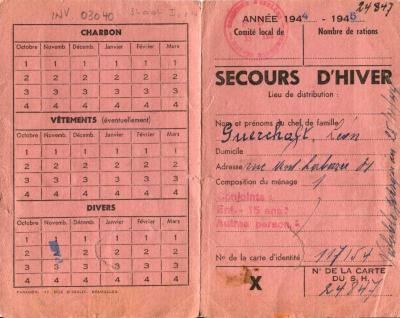 INV. 03040
CHARBON
Octobre Novemb. Décemb. Janvier Février Mars
1 1 1 1 1 1
2 2 2 2 2 2
3 3 3 3 3 3
4 4 4 4 4 4
VÊTEMENTS (éventuellement)
Octobre Novemb. Décemb. Janvier Février Mars
1 1 1 1 1 1
2 2 2 2 2 2
3 3 3 3 3 3
4 4 4 4 4 4
DIVERS
Octobre Novemb. Décemb. Janvier Février Mars
1 1 1 1 1 1
2 2 2 2 2 2
3 3 3 3 3 3
4 4 4 4 4 4
24847
ANNÉE 1944 - 1945
Comité local de
Nombre de rations
SECOURS D'HIVER
Lieu de distribution :
Nom et prénoms du chef de famille
Léon
Domicile
Adresse rue
Composition du ménage 1
Conjoints :
Enf. - 15 ans :
Autres person :
N° de la carte d'identité 117154
X
N° DE LA CARTE
DU S. H.
24847